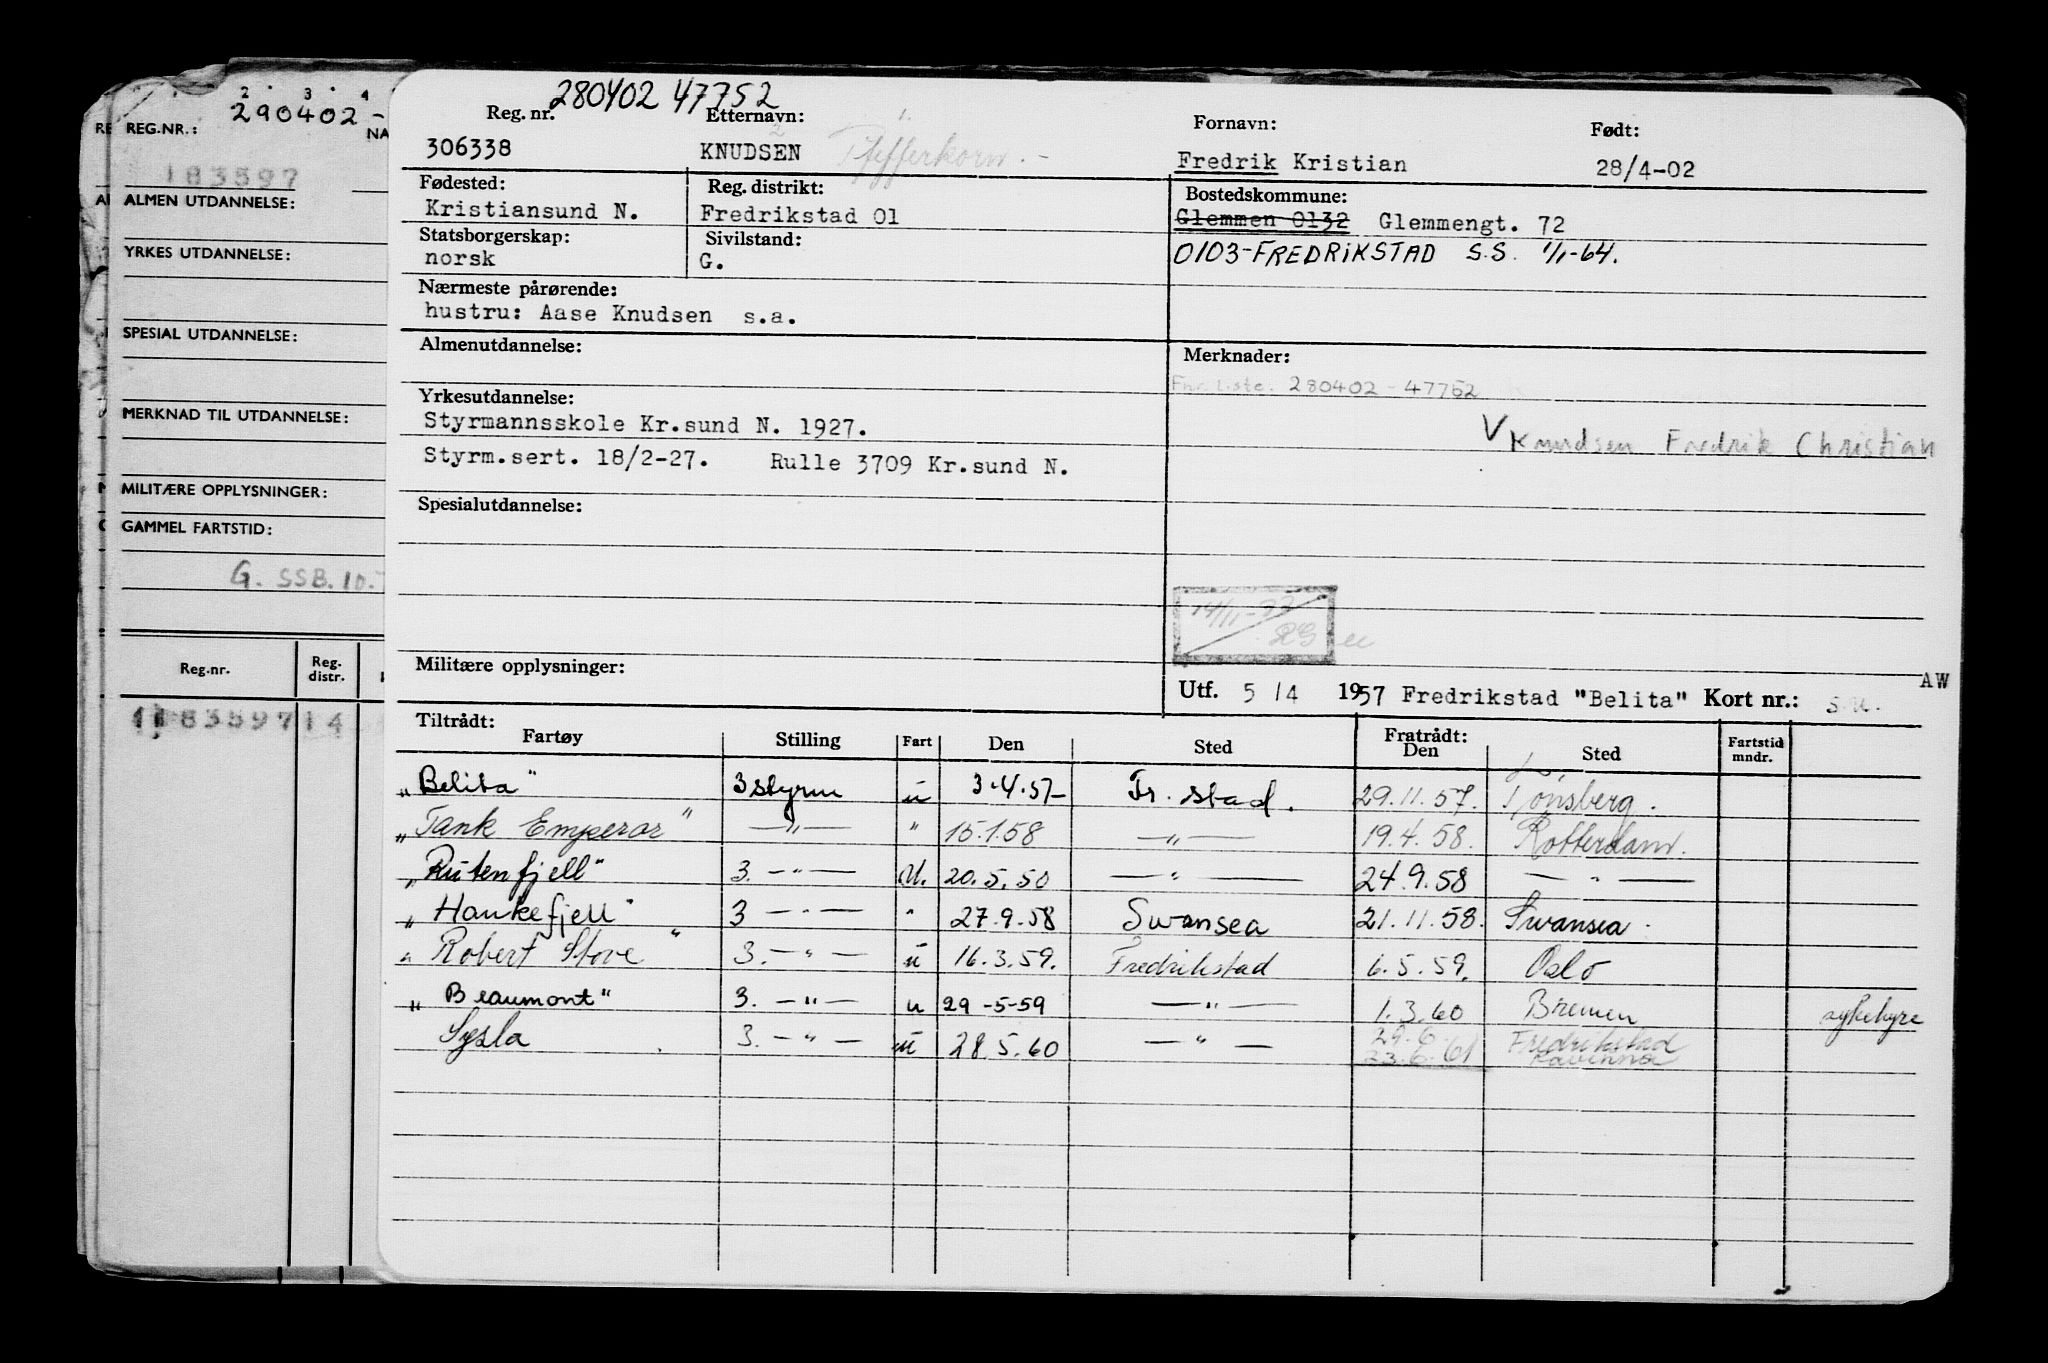 2 3 4
290402-
REG.NR.:
NA
183597
ALMEN UTDANNELSE:
YRKES UTDANNELSE:
SPESIAL UTDANNELSE:
MERKNAD TIL UTDANNELSE:
MILITÆRE OPPLYSNINGER:
GAMMEL FARTSTID:
G. SSB. 10.
Reg.nr. Reg. distr.
183597 14
280402 47752
Reg. nr. Etternavn: Fornavn: Født:
306338 KNUDSEN Pfefferkorn.- Fredrik Kristian 28/4-02
Fødested: Reg. distrikt: Bostedskommune:
Kristiansund N. Fredrikstad 01 Glemmen 0132 Glemmengt. 72
Statsborgerskap: Sivilstand:
norsk G. 0103-FREDRIKSTAD S.S. 1/1-64.
Nærmeste pårørende:
hustru: Aase Knudsen s.a.
Almenutdannelse: Merknader:
Fnr. liste. 280402-47752
Yrkesutdannelse:
Styrmannsskole Kr.sund N. 1927.
V Knudsen Fredrik Christian
Styrm.sert. 18/2-27. Rulle 3709 Kr.sund N.
Spesialutdannelse:
14/11-
Militære opplysninger:
Utf. 5/4 1957 Fredrikstad "Belita" Kort nr.: AW
Tiltrådt: Fratrådt:
Fartøy Stilling Fart Den Sted Den Sted Fartstid mndr.
„Belita" 3 styrm u 3.4.57- Fr. stad. 29.11.57. Tønsberg.
„Tank Emperor" —"— " 15.1.58 —"— 19.4.58. Rotterdam.
„Rutenfjell" 3. —"— U. 20.5.50 —"— 24.9.58 —"—
„Haukefjell" 3 —"— " 27.9.58 Swansea 21.11.58. Swansea.
„Robert Stove" 3. —"— u 16.3.59. Fredrikstad 6.5.59. Oslo
„Beaumont" 3. —"— u 29-5-59 —"— 1.3.60 Bremen sykehyre
Sysla 3. —"— u 28.5.60 —"— 29.6. Fredrikstad
23.6.61 Ravenna